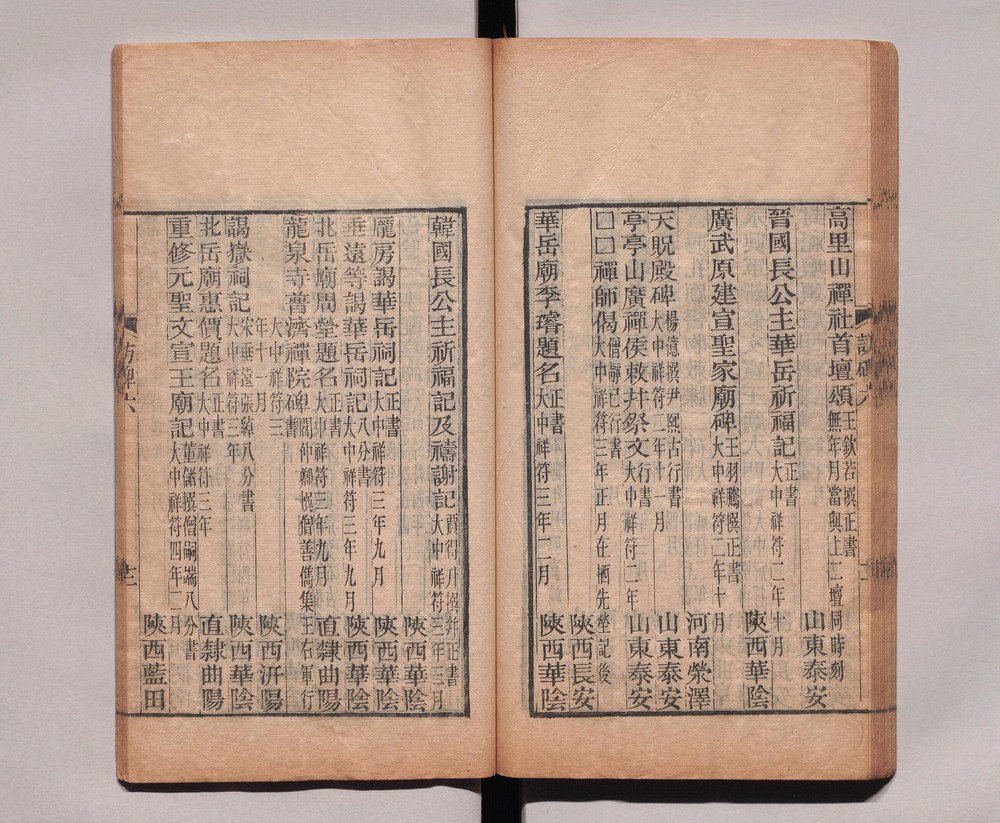 高里山禪社首壇頌 王欽若撰正書 無年月當與上二壇同時刻
山東泰安
晉國長公主華岳祈福記 正書 大中祥符二年十月
陝西華陰
廣武原建宣聖家廟碑 王羽鵬撰正書 大中祥符二年十月
河南滎澤
天貺殿碑 楊億撰尹熙古行書 大中祥符二年十一月
山東泰安
亭亭山廣禪侯敕并祭文 行書 大中祥符二年
山東泰安
□□禪師偈 僧靜己行書 大中祥符三年正月在栖先塋記後
陝西長安
華岳廟李璿題名 正書 大中祥符三年二月
陝西華陰
韓國長公主祈福記及禱謝記 賈得升撰并正書 大中祥符三年三月
陝西華陰
龐房謁華岳祠記 正書 大中祥符三年九月
陝西華陰
垂遠等謁華岳祠記 八分書 大中祥符三年九月
陝西華陰
北岳廟周瑩題名 正書 大中祥符三年九月
直隸曲陽
龍泉寺普濟禪院碑 閻仲卿撰僧善儁集王右軍行書
大中祥符三年十一月
陝西汧陽
謁嶽祠記 宋垂遠張綽八分書 大中祥符三年
陝西華陰
北岳廟惠價題名 正書 大中祥符三年
直隸曲陽
重修元聖文宣王廟記 董儲撰僧嗣端八分書 大中祥符四年二月
陝西藍田
訪碑六